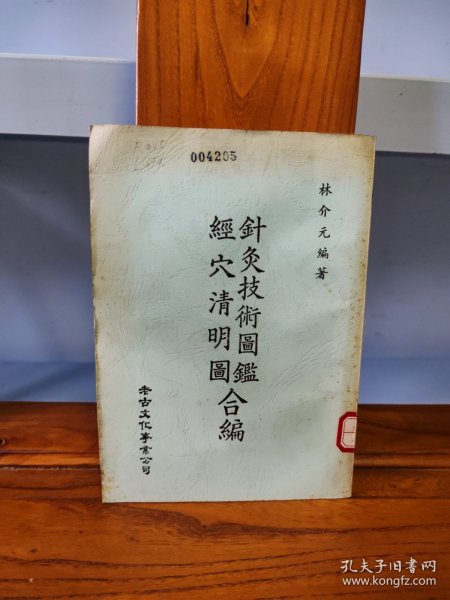 004295
林介元編著
針灸技術圖鑑
經穴清明圖
合編
老古文化事業公司
孔夫子旧書网
www.kongfz.com